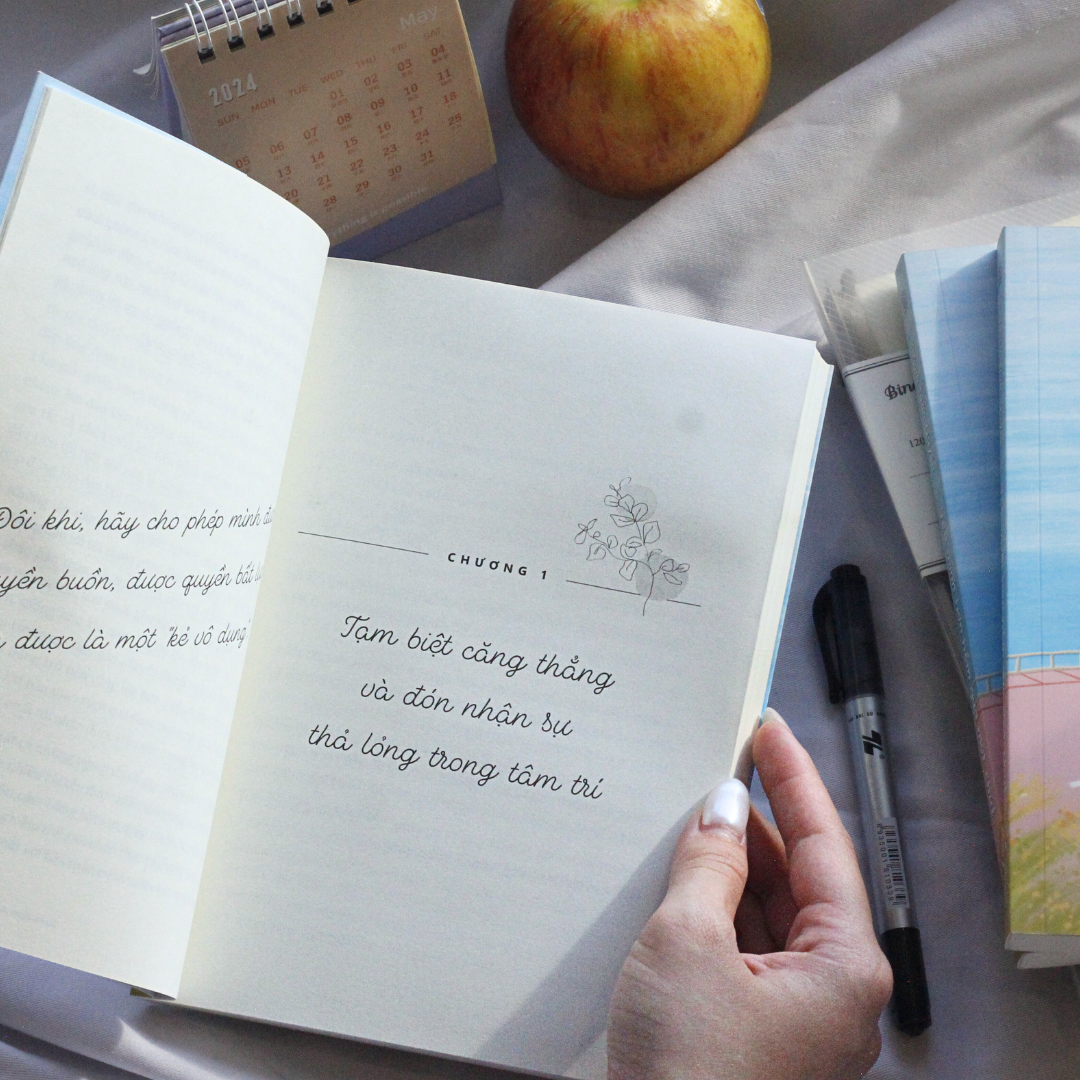 May
2024
SUN MON TUE WED THU FRI SAT
01 02 03 04
05 06 07 08 09 10 11
13 14 15 16 17 18
20 21 22 23 24 25
28 29 30 31
is possible
Đôi khi, hãy cho phép mình
buồn, được quyền bất
được là một "kẻ vô dụng"
CHƯƠNG 1
Tạm biệt căng thẳng
và đón nhận sự
thả lỏng trong tâm trí
120